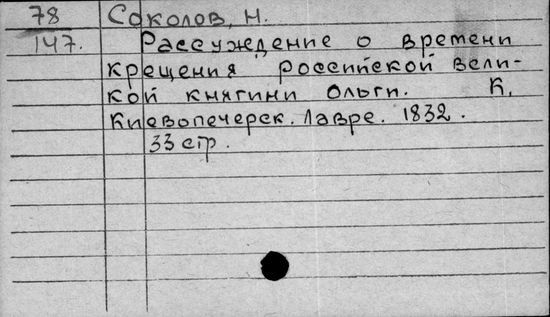 78 Соколов, Н.
147. Рассуждение о времени
крещения российской вели-
кой княгини Ольги. К.
Киевопечерск. Лавре. 1832.
33 стр.